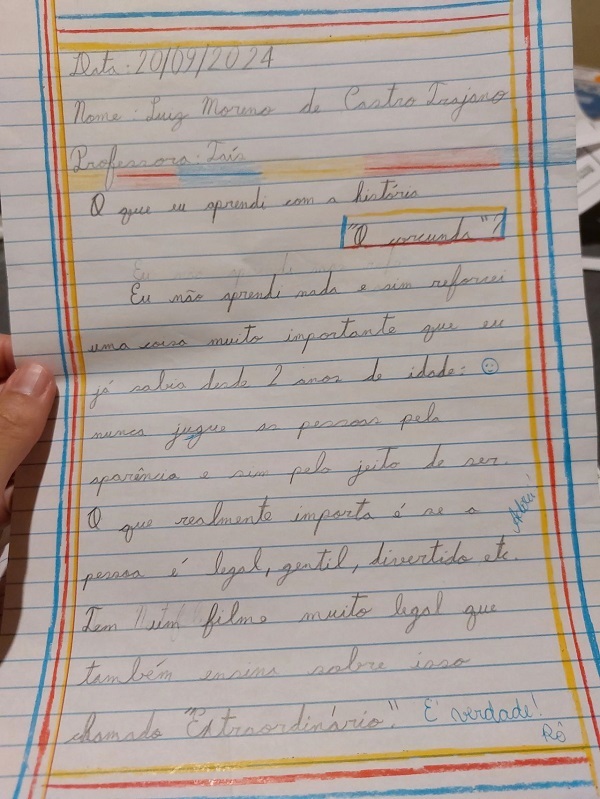 Data: 20/09/2024
Nome: Luiz Moreno de Castro Trajano
Professora: Taís
O que eu aprendi com a história
"O corcunda"?
Eu não aprendi nada e sim reforcei
uma coisa muito importante que eu
já sabia desde 2 anos de idade: ☺
nunca jugue as pessoas pela
aparência e sim pelo jeito de ser.
O que realmente importa é se a
pessoa é legal, gentil, divertida etc.
Adorei!
Tem um filme muito legal que
também ensina sobre isso
chamado "Extraordinário". É verdade!
Rô